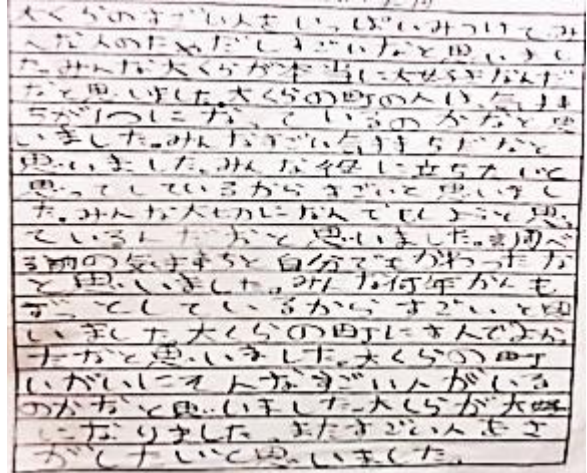 大くらのすごい人をいっぱいみつけてみ
んな人のた だしすごいなと思いまし
た。みんな大くらが本当に大好きなんだ
なと思いました。大くらの町の人は、気持
ちが1つになっているのかなと思
いました。みんなすごい気持ちだなと
思いました。みんな役に立ちたいと
思ってしているからすごいと思いまし
た。みんな大切になんでもしようと思っ
ているんだなと思いました。調べ
る前の気持ちと自分でもかわったな
と思いました。みんな何年かんも
ずっとしているからすごいと思
いました。大くらの町にすんでよかっ
たなと思いました。大くらの町
いがいにそんなすごい人がいる
のかなと思いました。大くらが大好き
になりました。またすごい人をさ
がしたいと思いました。